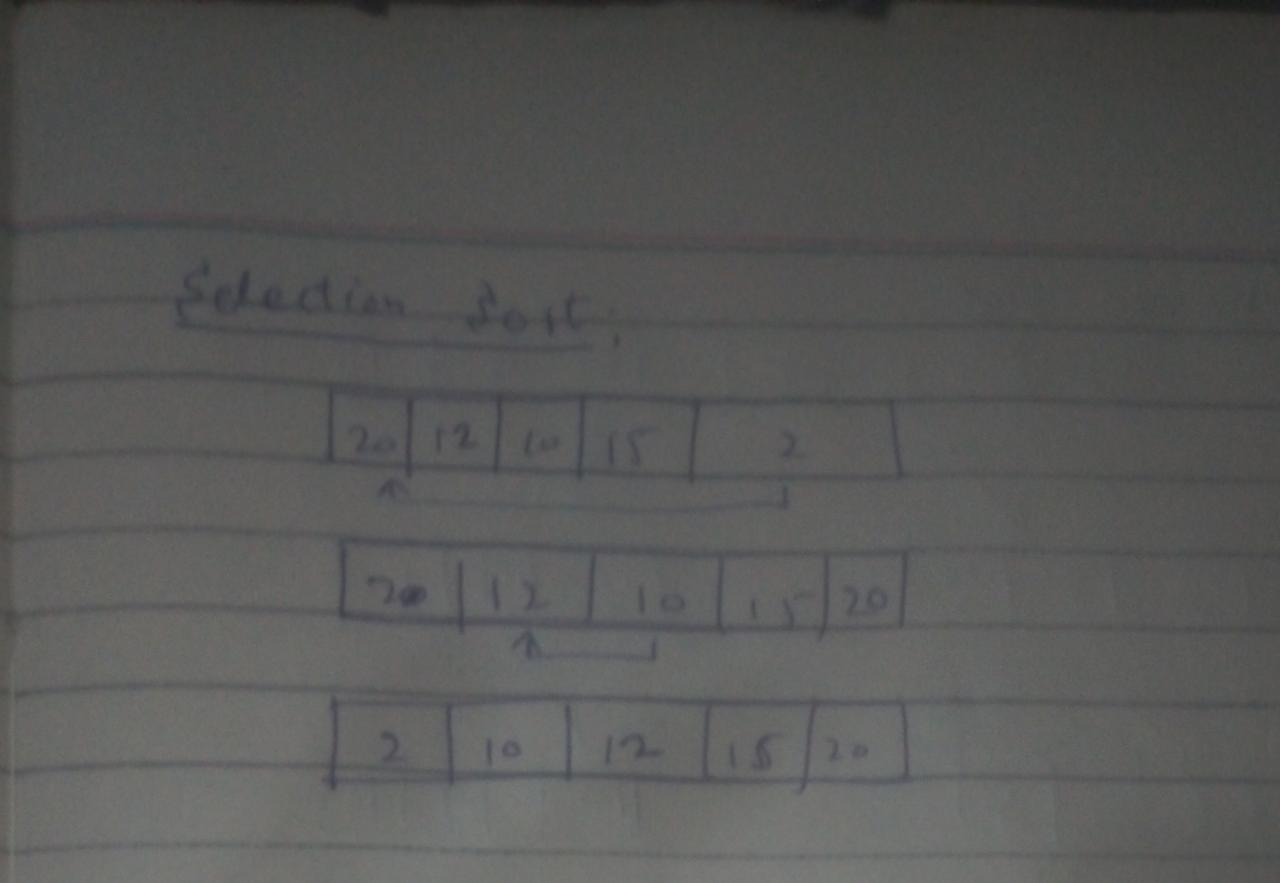 Selection Sort;
20 12 10 15 2
20 12 10 15 20
2 10 12 15 20